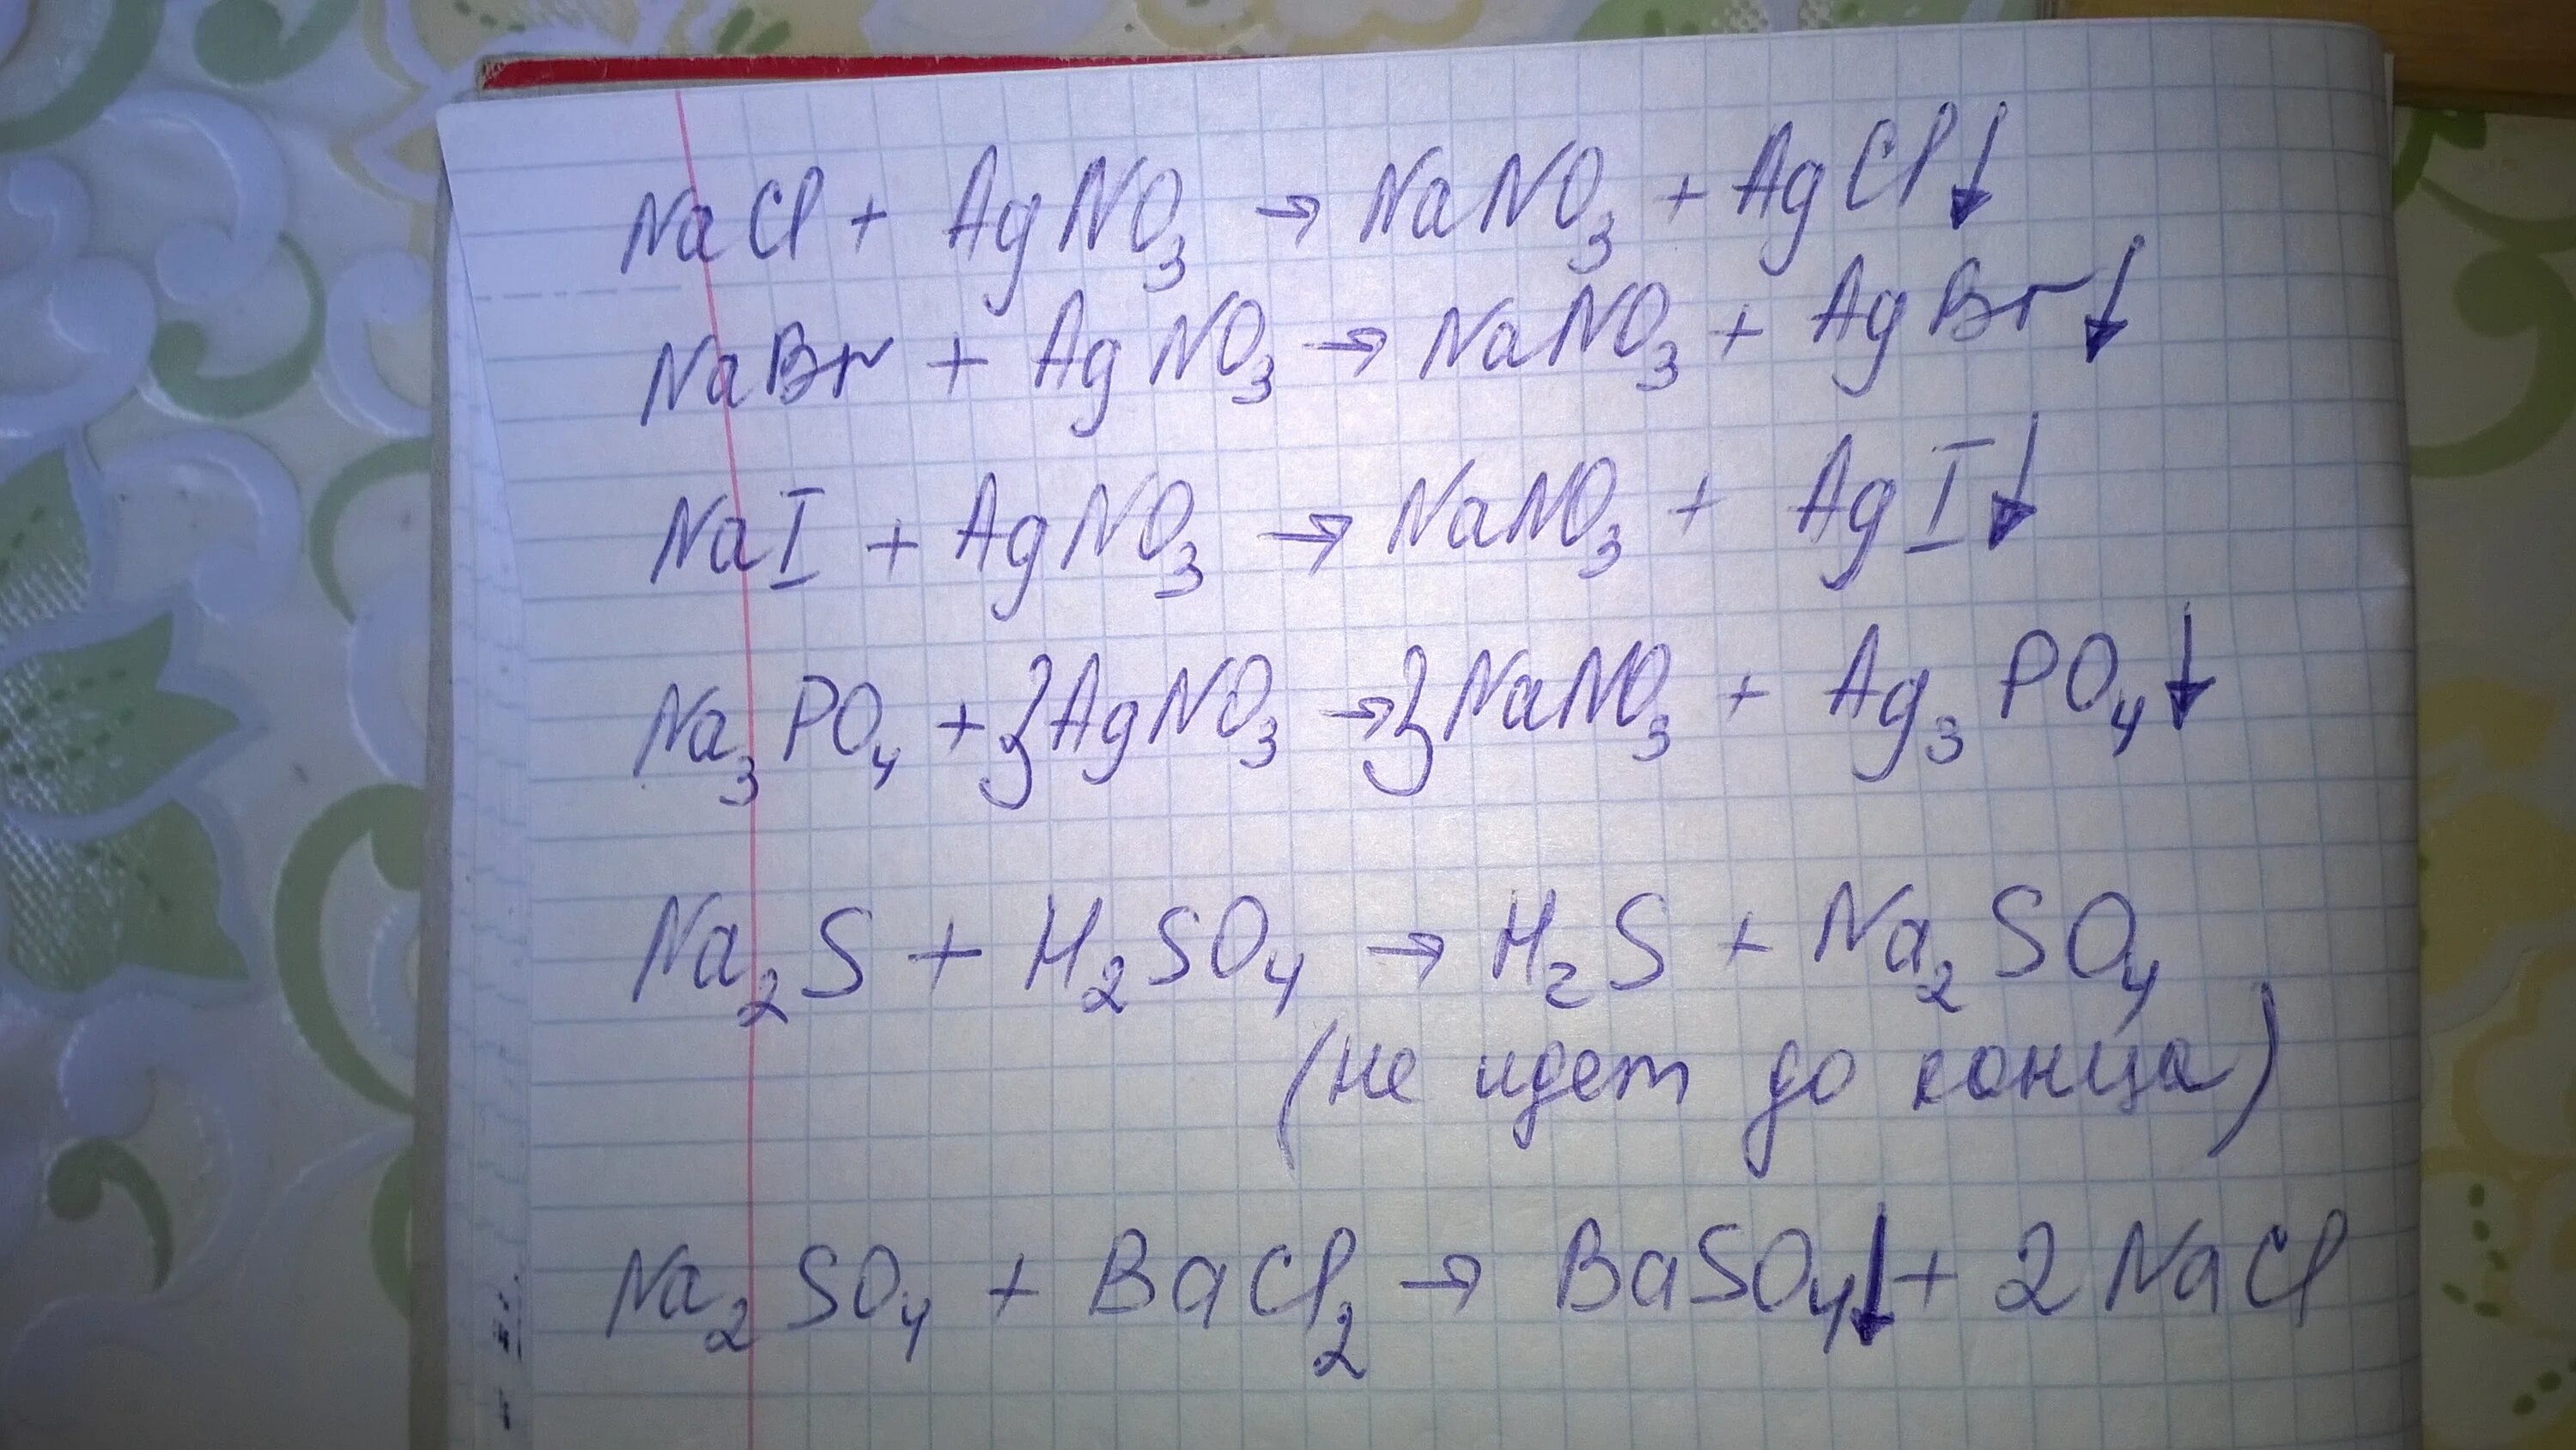 NaCl + AgNO₃ → NaNO₃ + AgCl↓
NaBr + AgNO₃ → NaNO₃ + AgBr↓
NaI + AgNO₃ → NaNO₃ + AgI↓
Na₃PO₄ + 3AgNO₃ → 3NaNO₃ + Ag₃PO₄↓
Na₂S + H₂SO₄ → H₂S + Na₂SO₄
(не идет до конца)
Na₂SO₄ + BaCl₂ → BaSO₄↓ + 2NaCl